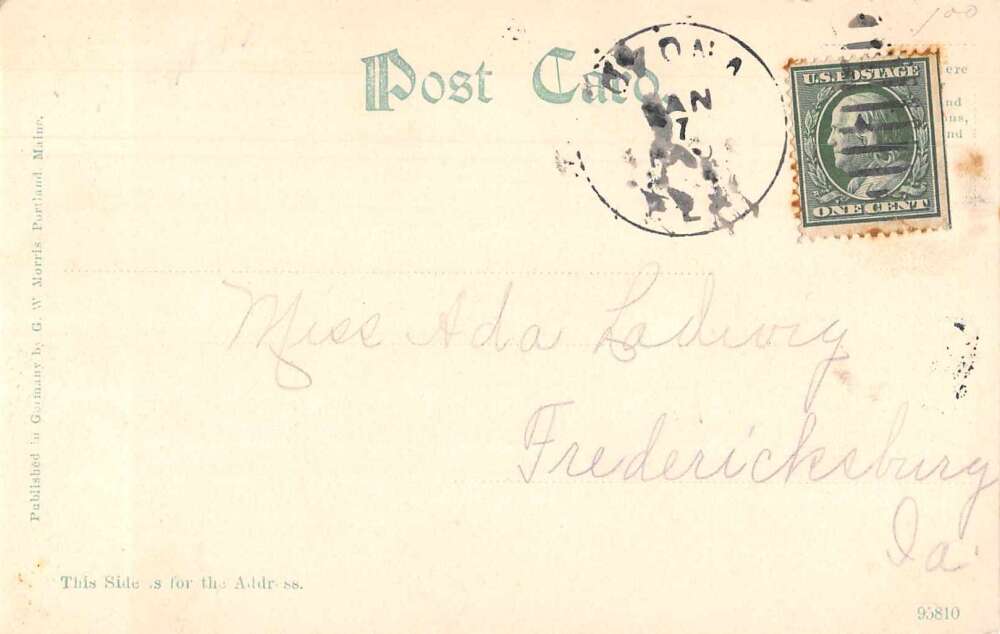 100
Post Card
JAN
7
U.S. POSTAGE
ONE CENT
ere
nd
ns,
nd
Published in Germany by G. W. Morris, Portland, Maine.
Miss Ada Ladwig
Fredericksburg
Ia.
This Side is for the Address.
95810